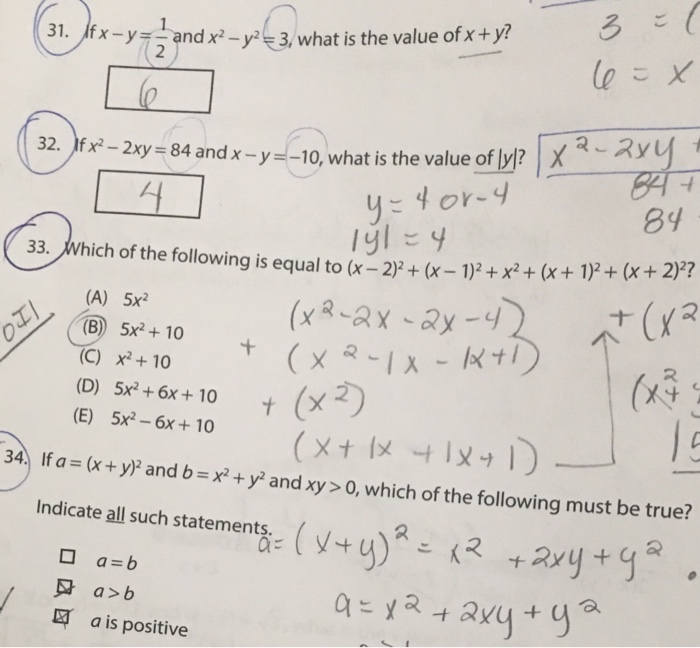 31. If x – y = 1/2 and x² – y² = 3, what is the value of x + y?
3 = (
6 = x
6
32. If x² – 2xy = 84 and x – y = –10, what is the value of |y|?
x² - 2xy +
84 +
84
4
y = 4 or -4
|y| = 4
33. Which of the following is equal to (x – 2)² + (x – 1)² + x² + (x + 1)² + (x + 2)²?
(A) 5x²
(B) 5x² + 10
(C) x² + 10
(D) 5x² + 6x + 10
(E) 5x² – 6x + 10
(x² - 2x - 2x - 4)
+ (x² - 1x - 1x + 1)
+ (x²)
(x + 1x + 1x + 1)
+ (x²
(x² +
15
34. If a = (x + y)² and b = x² + y² and xy > 0, which of the following must be true?
Indicate all such statements.
a = (x+y)² = x² + 2xy + y²
a = x² + 2xy + y²
a = b
a > b
a is positive